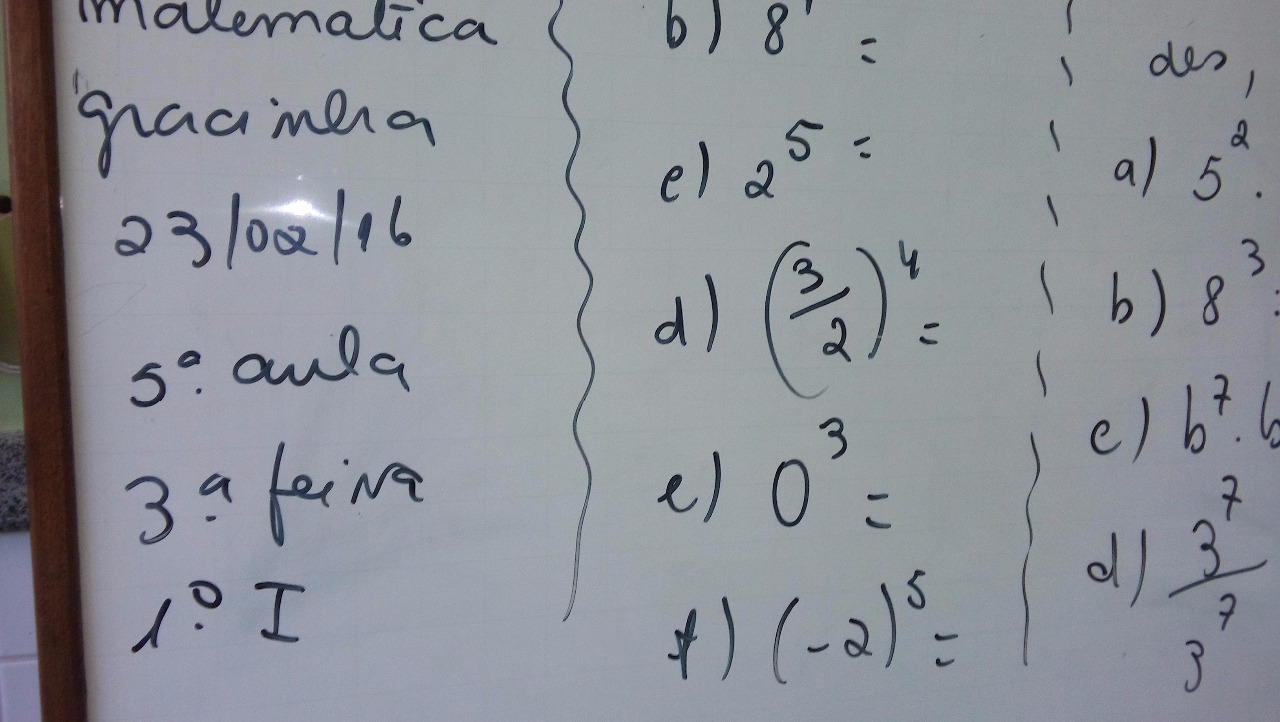 matematica
gracinha
23/02/16
5ª. aula
3ª. feira
1º. I
b) 8¹ =
c) 2⁵ =
d) (3/2)⁴ =
e) 0³ =
f) (-2)⁵ =
des,
a) 5² .
b) 8³ :
c) b⁷ . b
d) 3⁷
3⁷